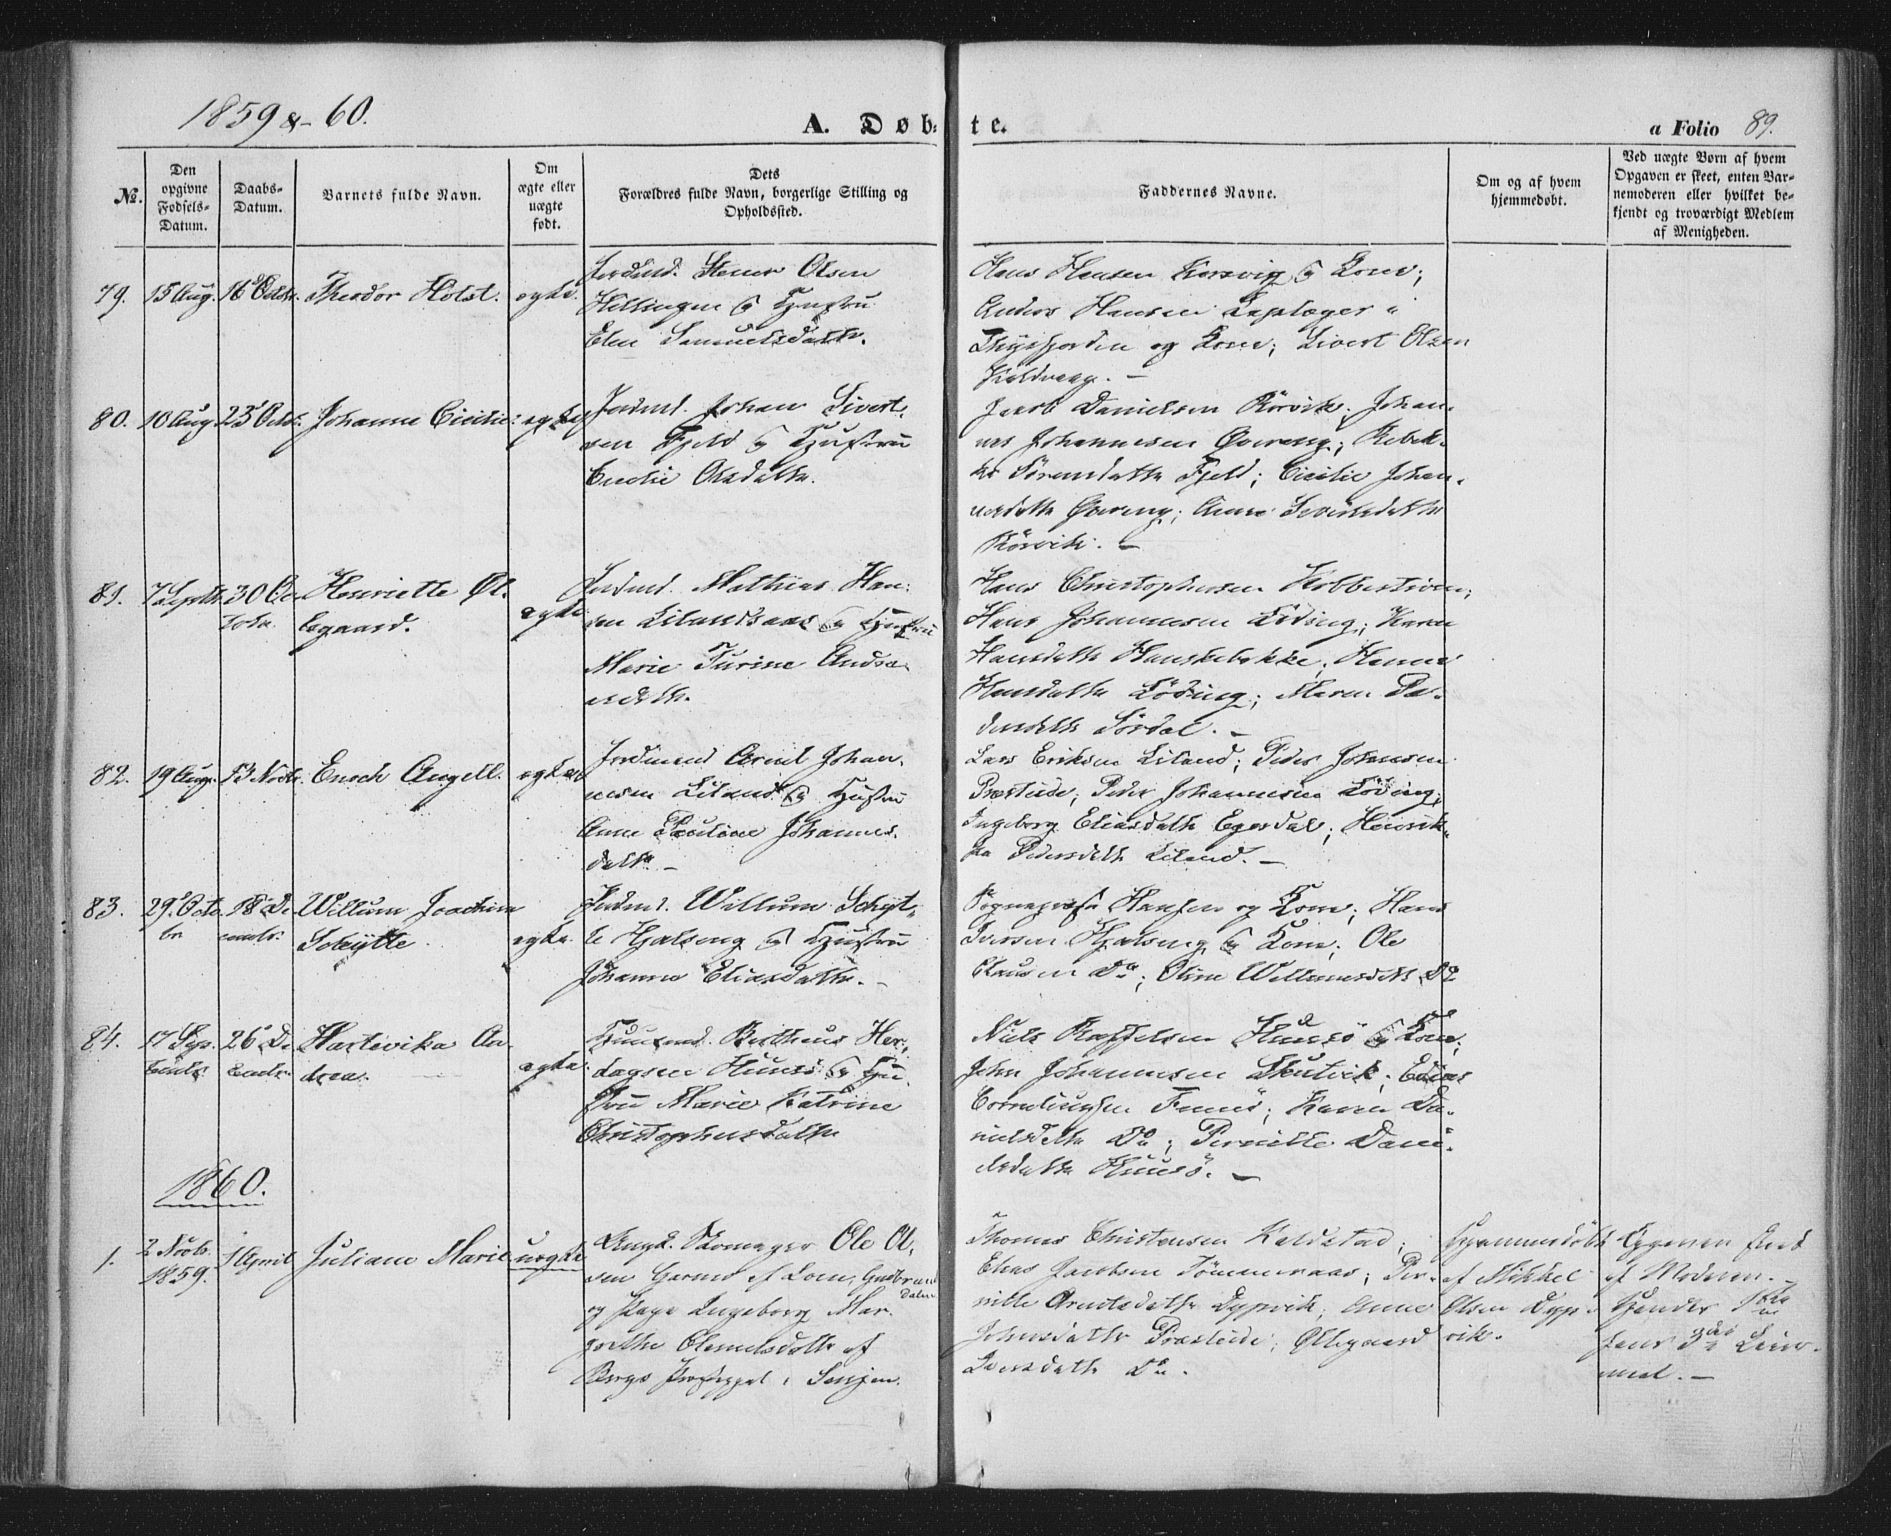 1859 & 60.
A. Døb-
te.
a Folio 89.
No.
Den opgivne Fødsels-Datum.
Daabs-Datum.
Barnets fulde Navn.
Om ægte eller uægte født.
Dets
Forældres fulde Navn, borgerlige Stilling og
Opholdssted.
Faddernes Navne.
Om og af hvem
hjemmedøbt.
Ved uægte Børn af hvem
Opgaven er skeet, enten Bar-
nemoderen eller hvilket be-
kjendt og troværdigt Medlem
af Menigheden.
79. 15 Aug. 16 Octr. Theodor Holst. ægte.
Olsen
og Hustru
Elen Samuelsdatter.
Hans Hansen Korsvig og Kone;
Anders Hansen i
og Kone; Sivert Olsen
80. 10 Aug 23 Octr. Johanna Cicilie ægte
Johan Sivert-
sen Fjeld og Hustru
Cecilie Olsdattr.
Jacob Danielsen Rørvik; Johan-
nes Johannesen Øvereng; Rebek-
ka Sørensdattr Fjeld; Cicilie Johan-
nesdattr Øvereng; Anne
Rørvik. -
81. 7 Septbr 30 Oc-
tobr.
Henriette Øl-
legaard.
ægte
Mathias Han-
sen Lilandsaas og Hustru
Marie Turine Andre-
asdattr.
Hans Christophersen
Hans Johannesen Løding; Karen
Hansdattr Hanskebakke; Hanna
Hansdattr Løding; Maren Pe-
dersdattr Sørdal. -
82. 19 Aug. 13 Novbr. Enoch Angell. ægte
Jordmand Arnt Johan-
nesen Liland og Hustru
Anne Pauline Johannes-
dattr -
Lars Eriksen Liland; Peder Johansen
Præsteide; Peder Johannesen Løding;
Ingeborg Eliasdattr Egersdal; Henrik-
ka Pedersdattr Liland. -
83. 29 Octo-
br
18 De-
cembr.
Willum Joachim
Schytte
ægte
Willum Schyt-
te Hjalseng og Hustru
Johanna Eliasdattr. -
Sogneprest Hansen og Kone; Hans
Iversen Hjalseng og Kone; Ole
Clausen Do; Oline Willumsdattr Do
84. 17 Sep-
tembr
26 De-
cembr.
Hartvika An-
drea.
ægte
Huusmd. Bertheus Her-
lagsen Huusø og Hu-
stru Marie Katrine
Christophersdatter
Niels Raffelsen Huusø og Kone;
John Johannesen Skutvik; Elias
Corneliussen
Karen Da-
nielsdattr Do; Pernille Dani-
elsdattr Huusø. -
1860.
1. 2 Novbr.
1859.
1 April Juliane Marie uægte
Ungk. Skomager Ole Ol-
sen Garmo af Lom, Gudbrands
dalen
og Pige Ingeborg Mar-
grethe Clemetsdattr af
Bergs Præstegjeld i Senjen.
Thomas Christensen Kaldstad;
Elias Jacobsen Tømmeraas; Per-
nille Arntsdattr Dypvik; Anne
Johnsdattr Præsteide; Ollegaard
Iversdattr Do.
Hjemmedøbt
af Mikkel
Olsen Dyp-
vik.
Opgaven skeet
af Moderen. -
Hendes 1ste
hans 3die Leier-
maal. -